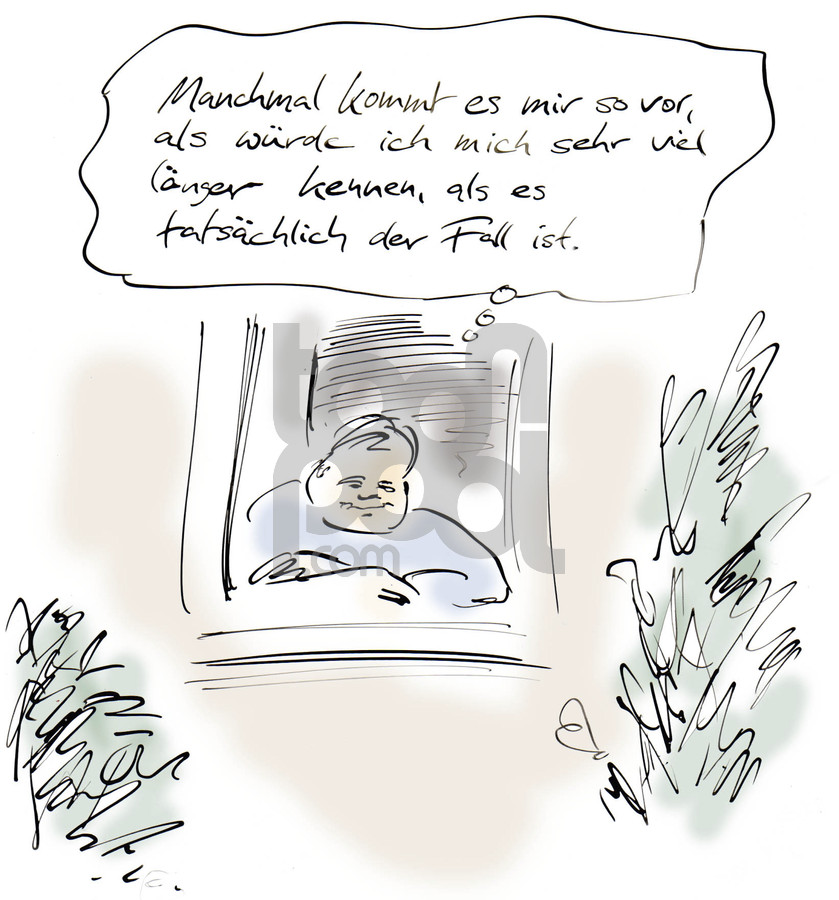 Manchmal kommt es mir so vor,
als würde ich mich sehr viel
länger kennen, als es
tatsächlich der Fall ist.
toon
pool
.com